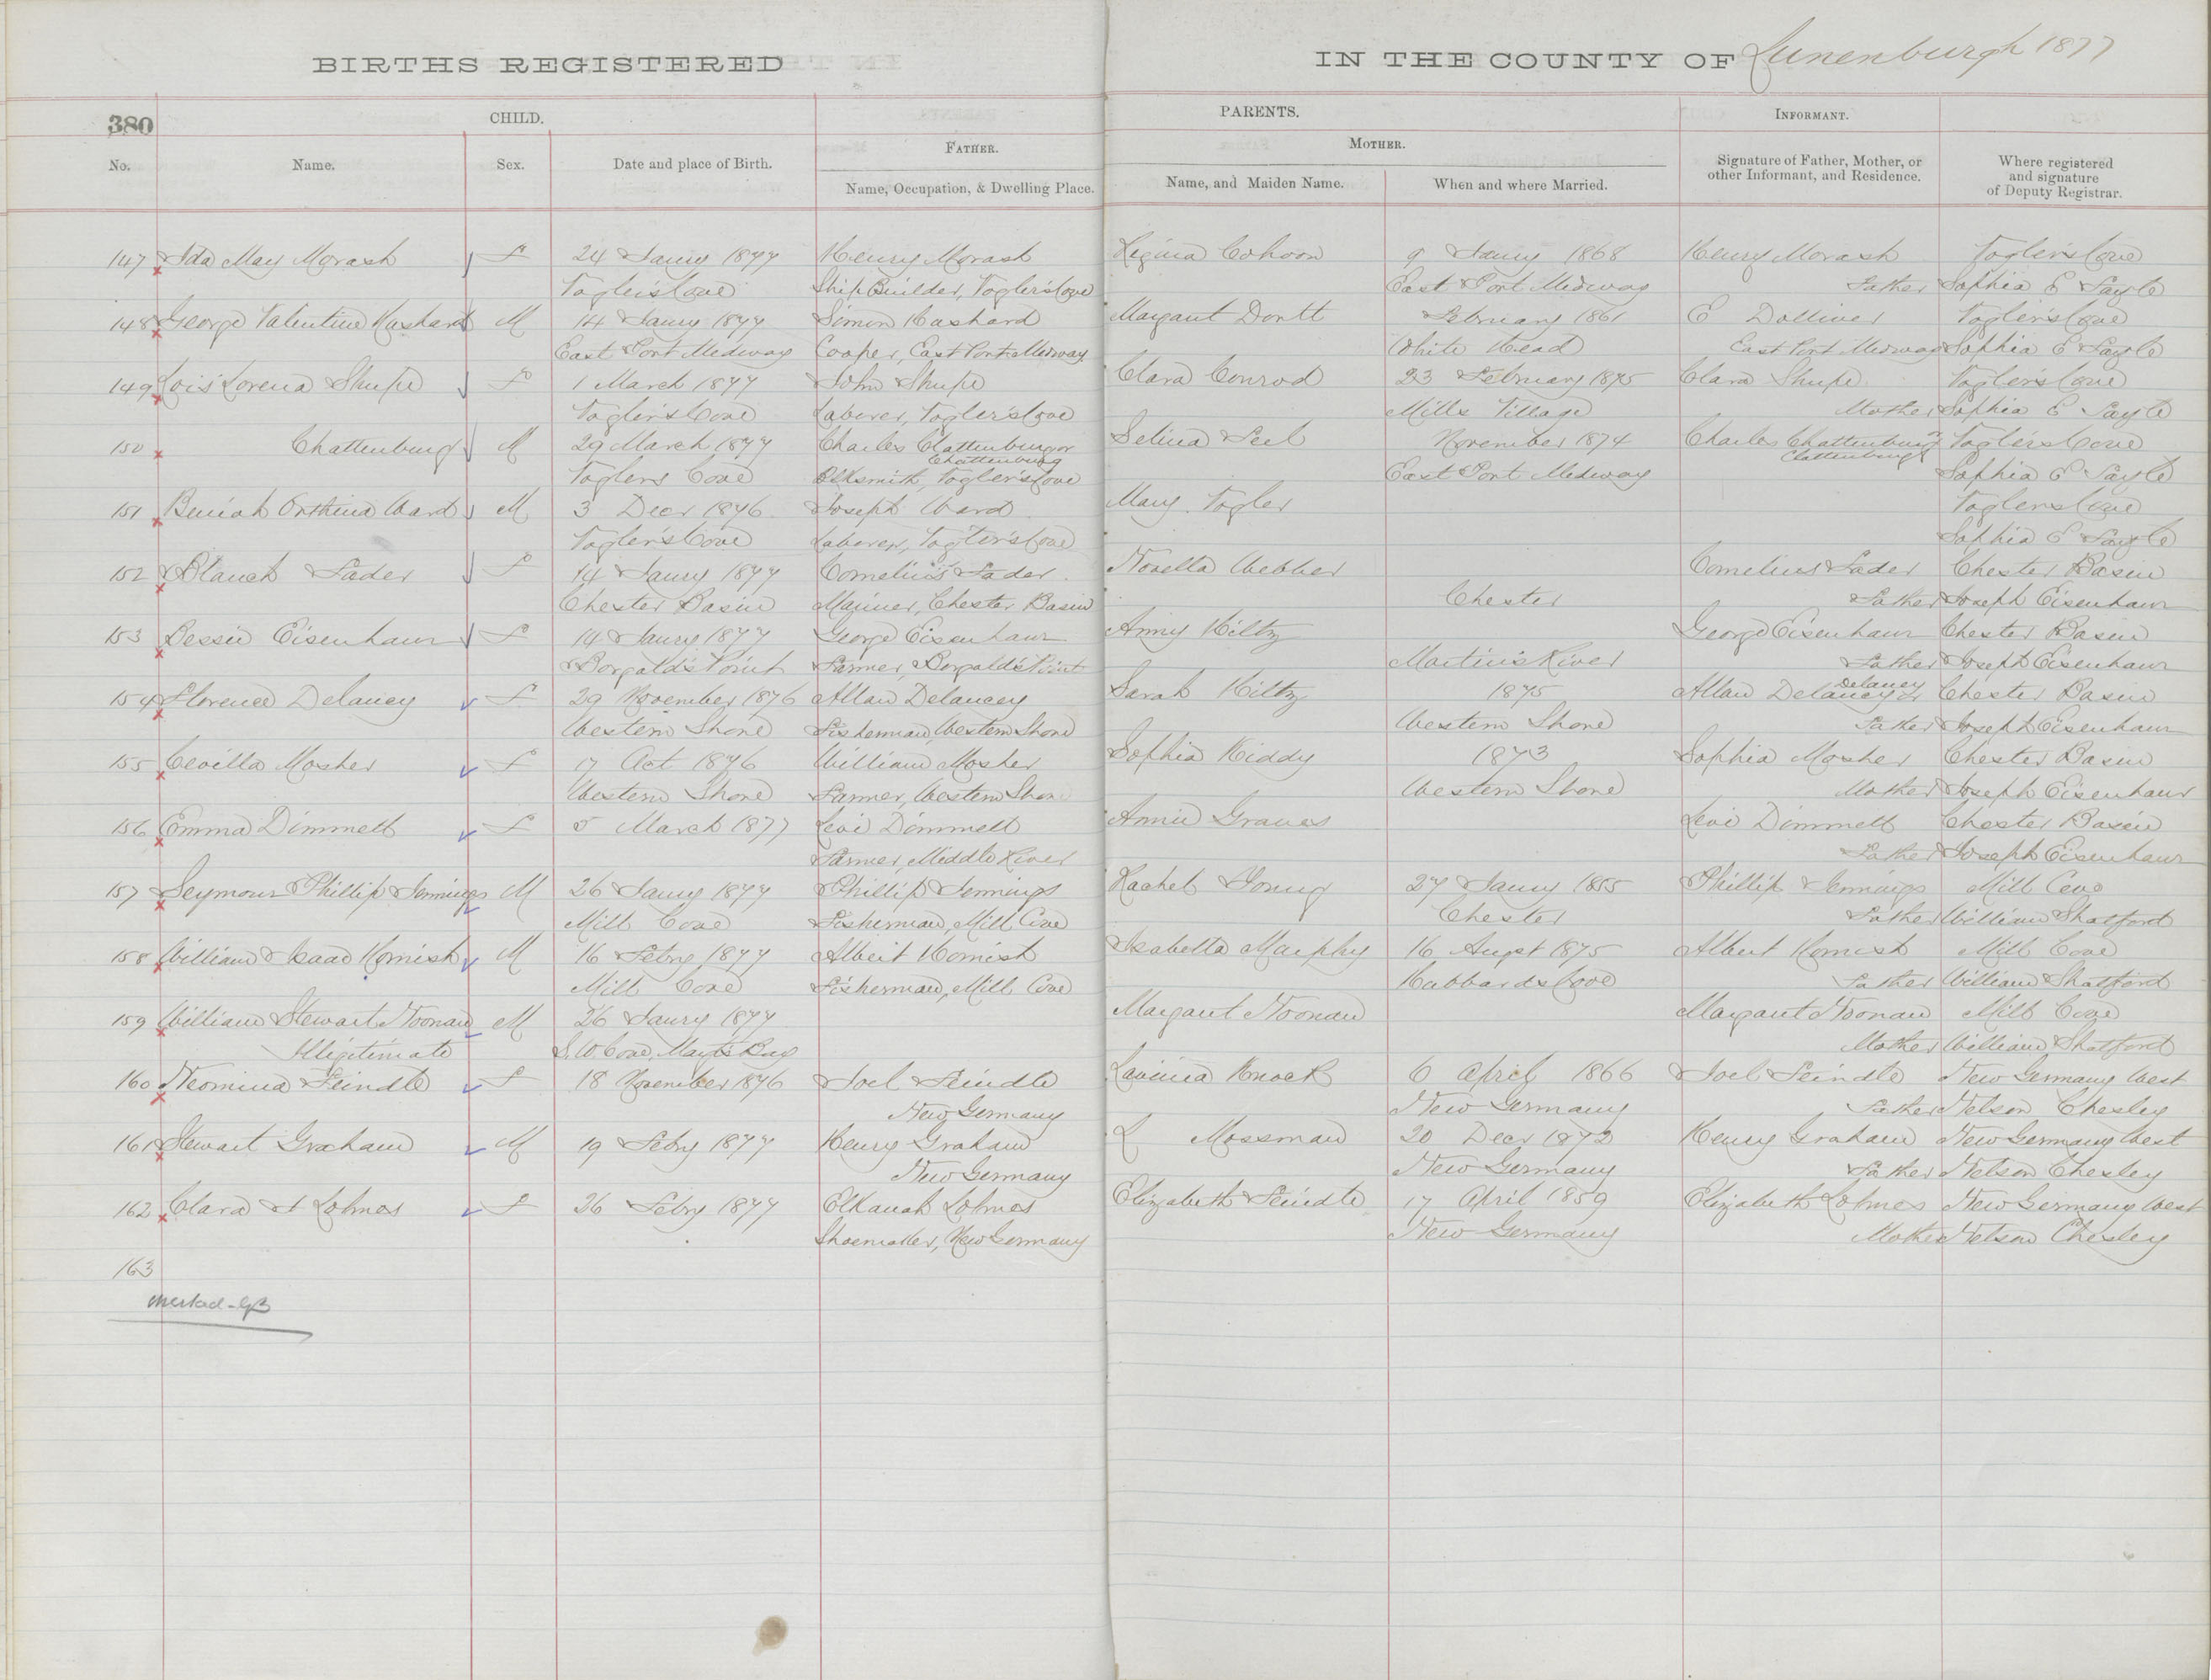 BIRTHS REGISTERED IN THE COUNTY OF Lunenburgh 1877
380 CHILD. PARENTS. INFORMANT.
FATHER. MOTHER.
No. Name. Sex. Date and place of Birth. Name, Occupation, & Dwelling Place. Name, and Maiden Name. When and where Married. Signature of Father, Mother, or other Informant, and Residence. Where registered and signature of Deputy Registrar.
147 Ida May Morash F 24 Jany 1877 Henry Morash Regina Cohoon 9 Jany 1868 Henry Morash Voglers Cove
Vogler's Cove Ship Builder, Vogler's Cove East Port Medway Father Sophia E
148 George Valentine M 14 Jany 1877 Simon Margaret February 1861 E Dolliver Vogler's Cove
East Port Medway Cooper, East Port Medway White Head East Port Medway Sophia E
149 Lois Lorena Shupe F 1 March 1877 John Shupe Clara Conrod 23 February 1875 Clara Shupe Vogler's Cove
Vogler's Cove Laborer, Vogler's Cove Mills Village Mother Sophia E
150 Chattenburg M 29 March 1877 Charles Clattenburg or Selina November 1874 Charles Chattenburg or Vogler's Cove
Chattenburg Clattenburg
Voglers Cove Blksmith, Vogler's Cove East Port Medway Sophia E
151 Beniah Ward M 3 Decr 1876 Joseph Ward Mary Vogler Voglers Cove
Vogler's Cove Laborer, Vogler's Cove Sophia E
152 Blanch Fader F 14 Jany 1877 Cornelius Fader Novella Webber Cornelius Fader Chester Basin
Chester Basin Mariner, Chester Basin Chester Father Joseph Eisenhaur
153 Bessie Eisenhaur F 14 Jany 1877 George Eisenhaur Anny Hiltz George Eisenhaur Chester Basin
Borgald's Point Farmer, Borgald's Point Martin's River Father Joseph Eisenhaur
154 Florence Delancy F 29 November 1876 Allan Delancey Sarah Hiltz 1875 Allan Delancy or Chester Basin
Delaney
Western Shore Fisherman, Western Shore Western Shore Father Joseph Eisenhaur
155 Cevilla Mosher F 17 Oct 1876 William Mosher Sophia Hiddy 1873 Sophia Mosher Chester Basin
Western Shore Farmer, Western Shore Western Shore Mother Joseph Eisenhaur
156 Emma Dimmell F 5 March 1877 Levi Dimmell Annie Graves Levi Dimmell Chester Basin
Farmer, Middle River Father Joseph Eisenhaur
157 Seymour Phillip Jennings M 26 Jany 1877 Phillip Jennings Rachel Young 27 Jany 1855 Phillip Jennings Mill Cove
Mill Cove Fisherman, Mill Cove Chester Father William Shatford
158 William Isaac Hornish M 16 Febry 1877 Albert Hornish Isabella Murphy 16 Augst 1875 Albert Hornish Mill Cove
Mill Cove Fisherman, Mill Cove Hubbards Cove Father William Shatford
159 William Stewart Noonan M 26 Janry 1877 Margaret Noonan Margaret Noonan Mill Cove
Illigitimate S. W. Cove, Margts Bay Mother William Shatford
160 Neomina Feindle F 18 November 1876 Joel Feindle Lavinia Knock 6 April 1866 Joel Feindle New Germany West
New Germany New Germany Father Nelson Chesley
161 Stewart Graham M 19 Febry 1877 Henry Graham L Mossman 20 Decr 1872 Henry Graham New Germany West
New Germany New Germany Father Nelson Chesley
162 Clara A Lohnes F 26 Febry 1877 Elkanah Lohnes Elizabeth Feindle 17 April 1859 Elizabeth Lohnes New Germany West
Shoemaker, New Germany New Germany Mother Nelson Chesley
163